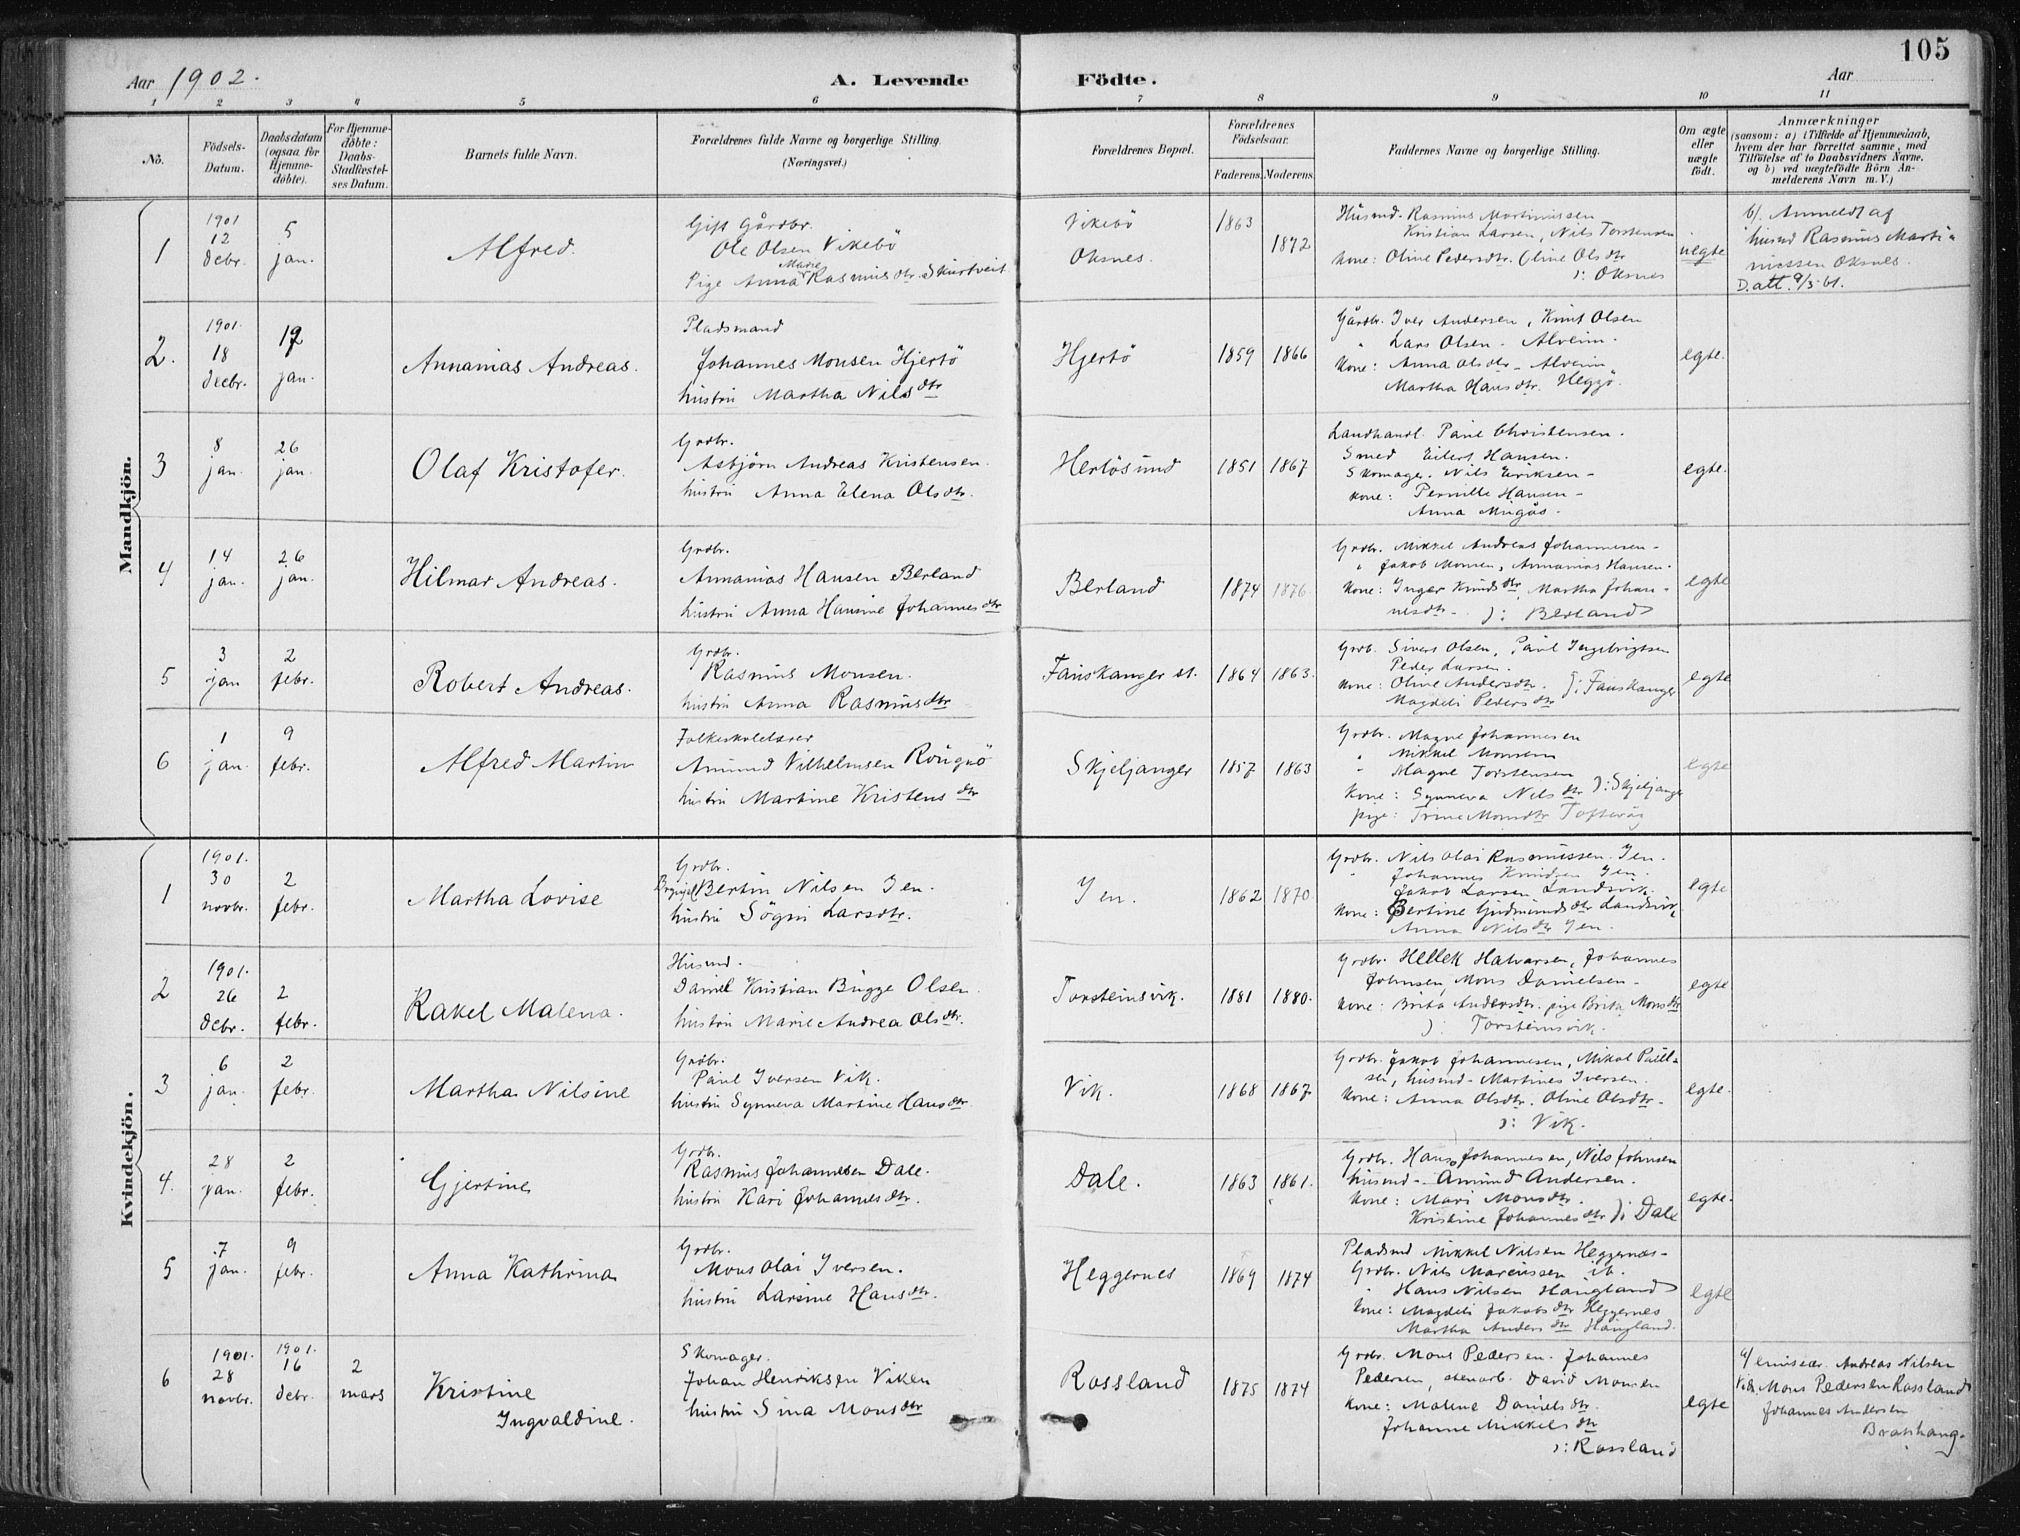 105
Aar 1902.
A. Levende Födte.
Aar
1 2 3 4 5 6 7 8 9 10 11
No.
Födsels-
Datum.
Daabsdatum
(ogsaa for
Hjemme-
döbte).
For Hjemme-
döbte:
Daabs-
Stadfæstel-
ses Datum.
Barnets fulde Navn.
Forældrenes fulde Navne og borgerlige Stilling.
(Næringsvei.)
Forældrenes Bopæl.
Forældrenes
Födselsaar.
Faderens. Moderens.
Faddernes Navne og borgerlige Stilling.
Om ægte
eller
uægte
födt.
Anmærkninger
(saasom: a) i Tilfælde af Hjemmedaab,
hvem der har forrettet samme, med
Tilföielse af to Daabsvidners Navne.
og b) ved uægtefödte Börn An-
melderens Navn m. V.)
Mandkjön.
1
1901
12
debr.
5
jan.
Alfred.
Gift Gårdbr.
Ole Olsen Vikebö
Pige Anna Marie Rasmusdtr Skurtveit
Vikebö
Oksnes.
1863
1872
Husmd. Rasmus Martinussen
Kristian Larsen, Nils Torstensen
kone: Oline Pedersdtr. Oline Olsdtr
): Oksnes
uegte
b/. Anmeldt af
husmd Rasmus Marti-
nussen Oksnes.
D. att. 9/5 61.
2.
1901.
18
decbr.
19
jan.
Annanias Andreas.
Pladsmand
Johannes Monsen Hjertö
hustru Martha Nilsdtr
Hjertö
1859 1866
Gårdbr. Iver Andersen, Knut Olsen
" Lars Olsen - Alveim.
kone: Anna Olsdtr - Alveim
Martha Hansdtr. Heggö.
egte.
3
8
jan.
26
jan.
Olaf Kristofer.
Grdbr.
Asbjörn Andreas Kristensen.
hustru Anna Elena Olsdtr.
Herlösund
1851 1867
Landhandl. Paul Christensen.
Smed Eilert Hansen.
Skomager. Nils Eriksen -
kone: Pernille Hansen -
Anna Mugås.
egte.
4
14
jan.
26
jan.
Hilmar Andreas.
Grdbr.
Annanias Hansen Berland
hustru Anna Hansine Johannesdtr
Berland
1874 1876
Grdbr. Mikkel Andreas Johannesen -
" Jakob Monsen, Annanias Hansen.
kone: Inger Knudsdtr, Martha Johan-
nesdtr - ): Berland
egte
5
3
jan
2
febr.
Robert Andreas.
Grdbr.
Rasmus Monsen.
hustru Anna Rasmusdtr
Fauskanger st.
1864 1863.
Grdb. Sivert Olsen, Paul Ingebrigtsen
Peder Larsen.
kone: Oline Andersdtr. ): Fauskanger
Magdeli Pedersdtr
egte
6
1
jan.
9
febr.
Alfred Martin
Folkeskolelærer
Amund Vilhelmsen Rougnö
hustru Martine Kristensdtr
Skjeljanger
1857 1863
Grdbr. Magne Johannesen
" Mikkel Monsen
" Magne Torstensen
kone: Synneva Nilsdtr ): Skjeljanger
pige: Trine Monsdtr Toftevåg
egte
Kvindekjön.
1
1901.
30
novbr.
2
febr.
Martha Lovise
Grdbr.
Bertin Nilsen Jen.
hustru Sögni Larsdtr.
Jen.
1862 1870
Grdbr. Nils Olai Rasmussen. Jen.
" Johannes Knudsen Jen.
Jakob Larsen Landsvik.
kone: Bertine Gudmundsdtr Landsvik
Anna Nilsdtr Jen.
egte
2
1901.
26
debr.
2
febr.
Rakel Malena.
Husmd.
Daniel Kristian Bugge Olsen.
hustru Marie Andrea Olsdtr.
Torsteinsvik.
1881 1880.
Grdbr. Hellek Halvarsen, Johannes
Johnsen, Mons Danielsen -
kone: Brita Andersdtr. pige Brita Monsdtr
): Torsteinsvik.
egte
3
6
jan.
2
febr.
Martha Nilsine
Grdbr.
Paul Iversen Vik.
hustru Synneva Martine Hansdtr.
Vik.
1868 1867
Grdbr. Jakob Johannesen, Mikal Paul-
sen, husmd - Martines Iversen.
kone: Anna Olsdtr. Oline Olsdtr -
): Vik.
egte.
4.
28
jan.
2
febr.
Gjertine
Grdbr.
Rasmus Johannesen Dale.
hustru Kari Johannesdtr.
Dale.
1863 1861.
Grdbr. Hans Johannesen, Nils Johnsen
husmd - Amund Andersen.
kone: Mari Monsdtr.
Kristine Johannesdtr ): Dale
egte.
5
7
jan.
9
febr.
Anna Kathrina
Grdbr.
Mons Olai Iversen.
hustru Larsine Hansdtr.
Heggernes
1869 1874
Pladsmd Mikkel Nilsen Heggernæs -
Grdbr. Nils Marcussen ib.
" Hans Nilsen Haugland
kone: Magdeli Jakobsdtr Heggernes
Martha Andersdtr Haugland.
egte
6
1901.
28
novbr.
1901.
16
debr.
2
mars
Kristine
Ingvaldine.
Skomager.
Johan Henriksen Viken
hustru Sina Monsdtr
Rossland
1875 1874
Grdbr. Mons Pedersen. Johannes
Pedersen, stenarb. David Monsen
kone: Malene Danielsdtr.
Johanne Mikkelsdtr
): Rossland
egte
a/ emissær. Andreas Nilsen
Vidn. Mons Pedersen Rossland
Johannes Andersen